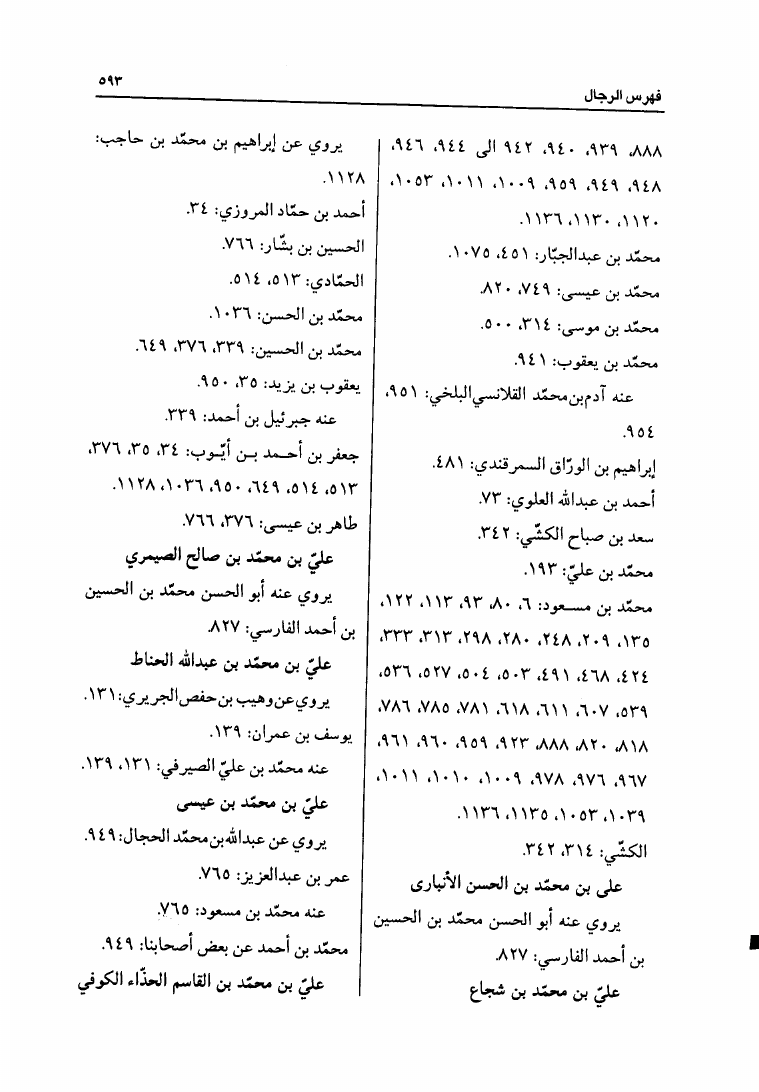 فهرس الرجال
٥٩٣
٨٨٨، ٩٣٩، ٩٤٠، ٩٤٢ الى ٩٤٤، ٩٤٦،
٩٤٨، ٩٤٩، ٩٥٩، ١٠٠٩، ١٠١١، ١٠٥٣،
١١٢٠، ١١٣٠، ١١٣٦.
محمّد بن عبدالجبّار: ٤٥١، ١٠٧٥.
محمّد بن عيسى: ٧٤٩، ٨٢٠.
محمّد بن موسى: ٣١٤، ٥٠٠.
محمّد بن يعقوب: ٩٤١.
عنه آدم‌بن‌محمّد القلانسي‌البلخي: ٩٥١،
٩٥٤.
إبراهيم بن الورّاق السمرقندي: ٤٨١.
أحمد بن عبدالله العلوي: ٧٣.
سعد بن صباح الكشّي: ٣٤٢.
محمّد بن عليّ: ١٩٣.
محمّد بن مسعود: ٦، ٨٠، ٩٣، ١١٣، ١٢٢،
١٣٥، ٢٠٩، ٢٤٨، ٢٨٠، ٢٩٨، ٣١٣، ٣٣٣،
٤٢٤، ٤٦٨، ٤٩١، ٥٠٣، ٥٠٤، ٥٢٧، ٥٣٦،
٥٣٩، ٦٠٧، ٦١١، ٦١٨، ٧٨١، ٧٨٥، ٧٨٦،
٨١٨، ٨٢٠، ٨٨٨، ٩٢٣، ٩٥٩، ٩٦٠، ٩٦١،
٩٦٧، ٩٧٦، ٩٧٨، ١٠٠٩، ١٠١٠، ١٠١١،
١٠٣٩، ١٠٥٣، ١١٣٥، ١١٣٦.
الكشّي: ٣١٤، ٣٤٢.
على بن محمّد بن الحسن الأنبارى
يروي عنه أبو الحسن محمّد بن الحسين
بن أحمد الفارسي: ٨٢٧.
عليّ بن محمّد بن شجاع
يروي عن إبراهيم بن محمّد بن حاجب:
١١٢٨.
أحمد بن حمّاد المروزي: ٣٤.
الحسين بن بشّار: ٧٦٦.
الحمّادي: ٥١٣، ٥١٤.
محمّد بن الحسن: ١٠٣٦.
محمّد بن الحسين: ٣٣٩، ٣٧٦، ٦٤٩.
يعقوب بن يزيد: ٣٥، ٩٥٠.
عنه جبرئيل بن أحمد: ٣٣٩.
جعفر بن أحمد بن أيّوب: ٣٤، ٣٥، ٣٧٦،
٥١٣، ٥١٤، ٦٤٩، ٩٥٠، ١٠٣٦، ١١٢٨.
طاهر بن عيسى: ٣٧٦، ٧٦٦.
عليّ بن محمّد بن صالح الصيمري
يروي عنه أبو الحسن محمّد بن الحسين
بن أحمد الفارسي: ٨٢٧.
عليّ بن محمّد بن عبدالله الحناط
يروي‌عن‌وهيب‌بن‌حفص‌الجريري: ١٣١.
يوسف بن عمران: ١٣٩.
عنه محمّد بن عليّ الصيرفي: ١٣١، ١٣٩.
عليّ بن محمّد بن عيسى
يروي عن عبدالله‌بن‌محمّد الحجال: ٩٤٩.
عمر بن عبدالعزيز: ٧٦٥.
عنه محمّد بن مسعود: ٧٦٥.
محمّد بن أحمد عن بعض أصحابنا: ٩٤٩.
عليّ بن محمّد بن القاسم الحذّاء الكوفي